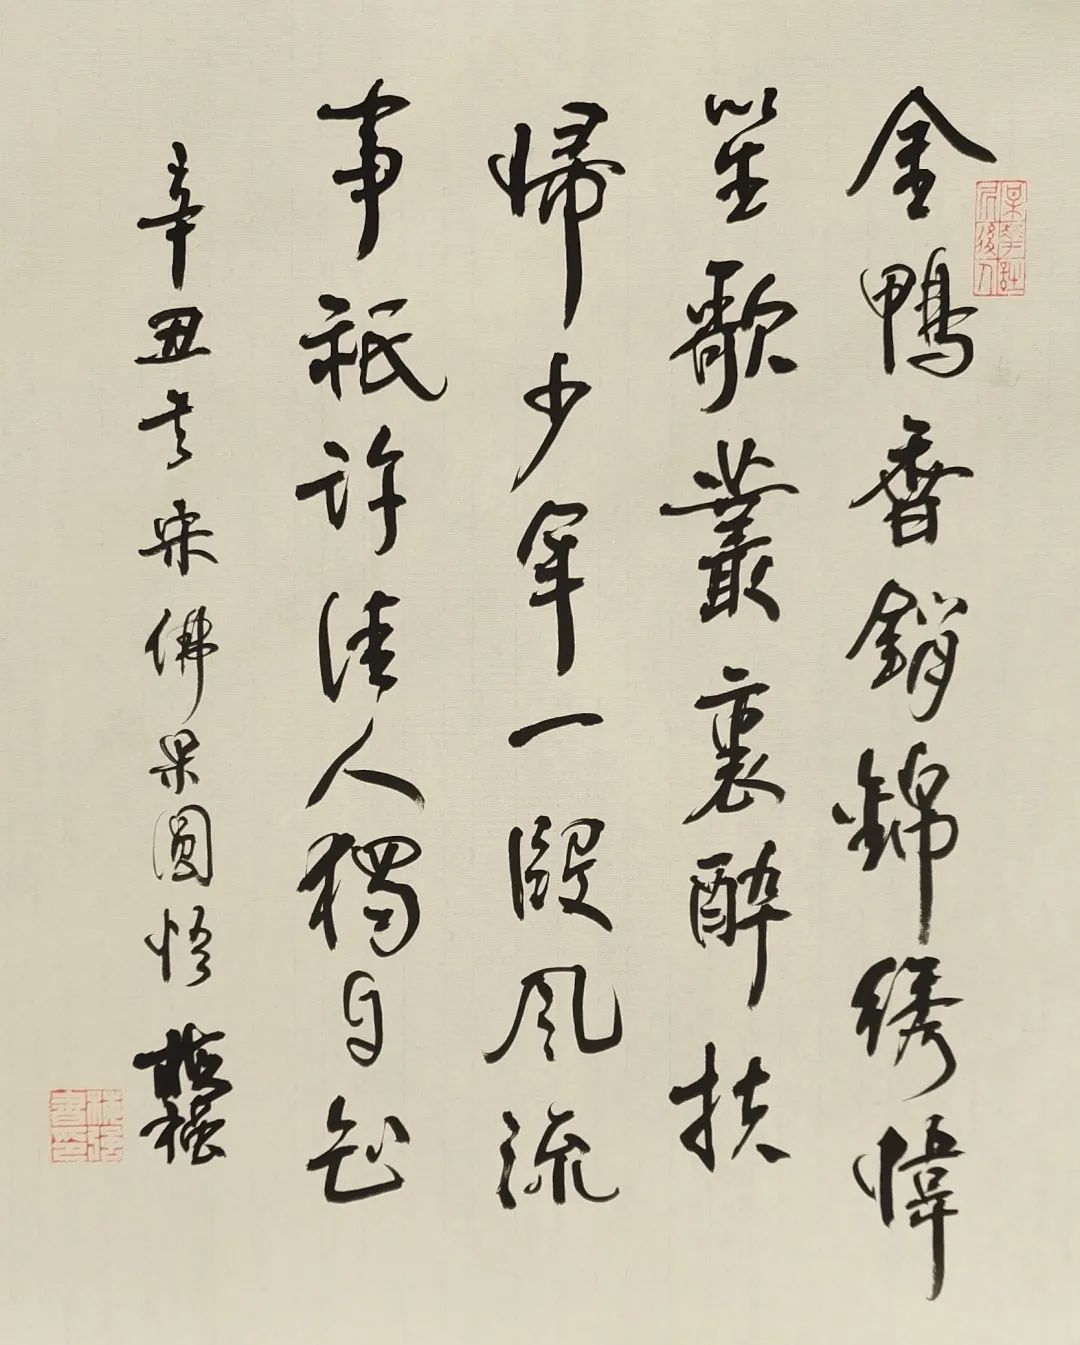 金鴨香銷錦綉幃
笙歌叢裏醉扶
歸少年一段風流
事祇許佳人獨自知
辛丑 宋佛果圓悟